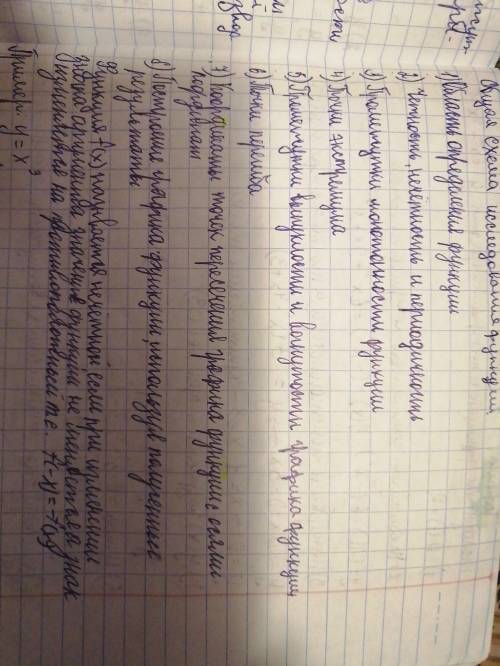 Общая схема исследования функции
1) Область определения функции
2) Четность, нечётность и периодичность
3) Промежутки монотонности функции
4) Точки экстремума
5) Промежутки выпуклости и вогнутости графика функции
6) Точки перегиба
7) Координаты точек пересечения графика функции с осями
координат
8) Построение графика функции, используя полученные
результаты
Функция f(x) называется нечётной если при изменении
знака аргумента значение функции не
на противоположный т.е. f-x=-f(x)
Пример y=x³